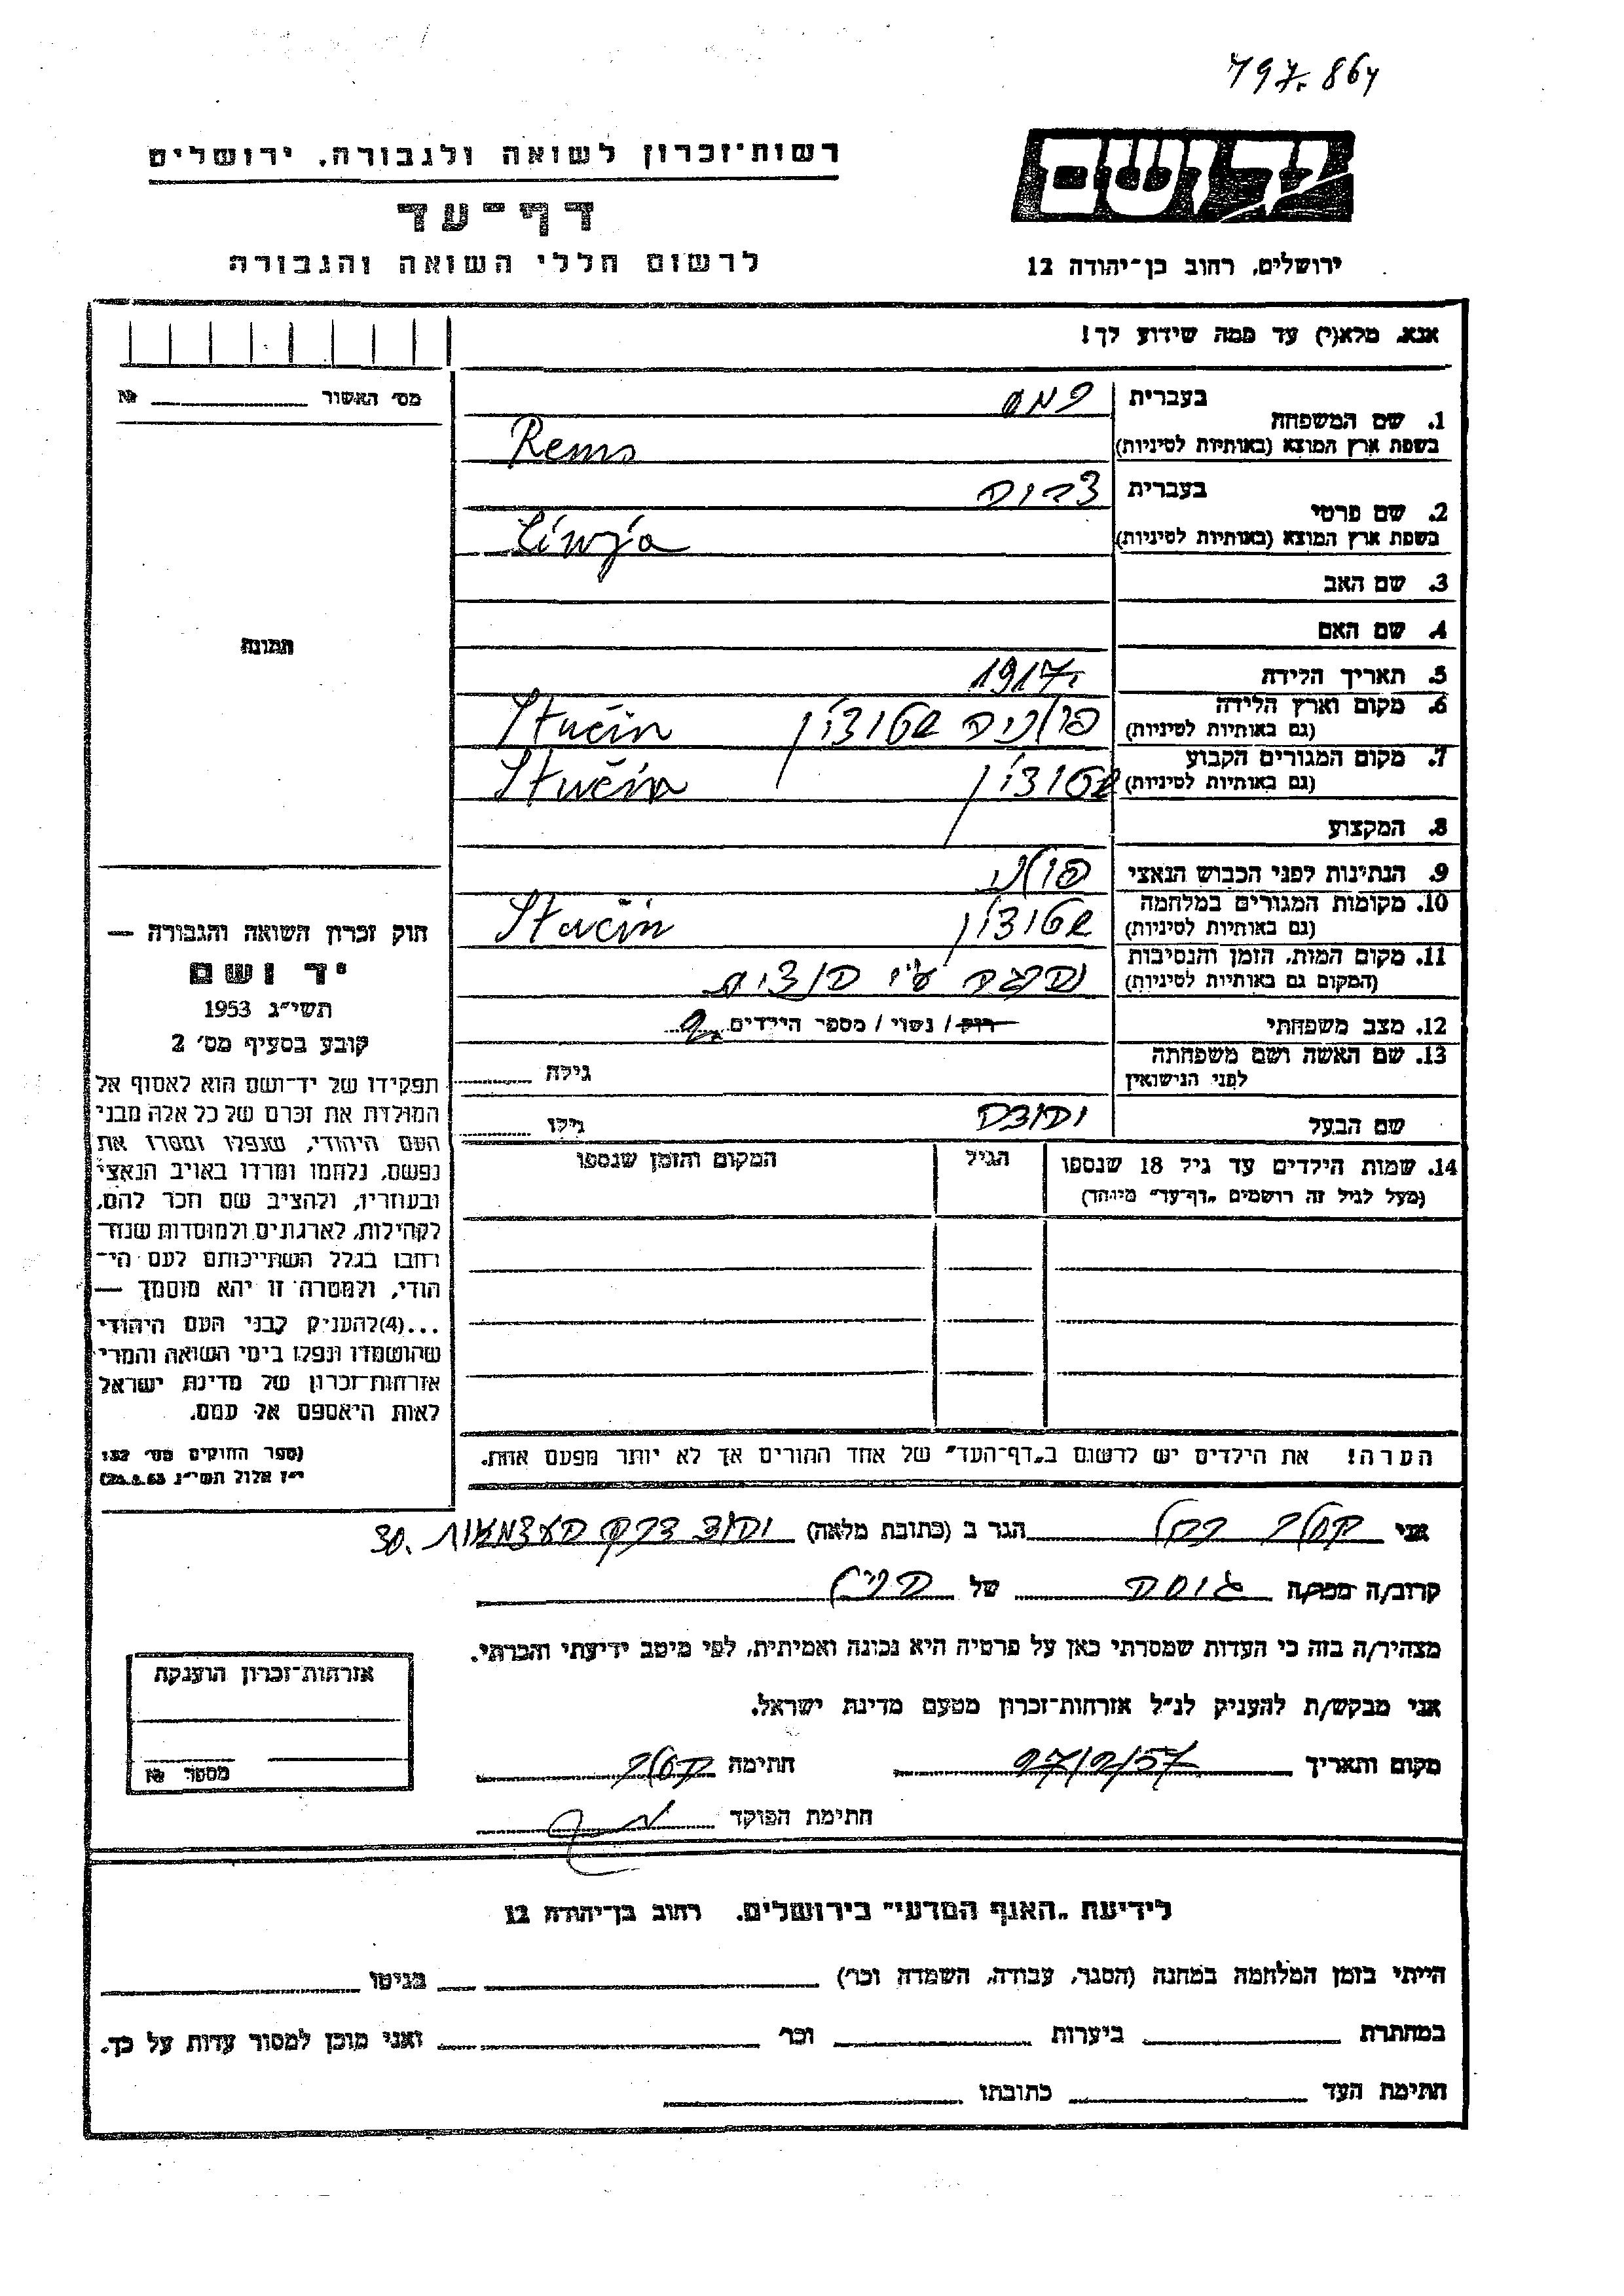 797.864
רשות־זכרון לשואה ולגבורה, ירושלים
דף־עד
לרשום חללי השואה והגבורה
יד ושם
ירושלים, רחוב בן־יהודה 12
אנא, מלא(י) עד כמה שידוע לך!
מס׳ האשור №
בעברית
1. שם המשפחה
בשפת ארץ המוצא (באותיות לטיניות) Rems
בעברית
2. שם פרטי
בשפת ארץ המוצא (באותיות לטיניות)
3. שם האב
4. שם האם
תמונה
5. תאריך הלידה 1917
6. מקום וארץ הלידה פולניה שטוצ׳ין Stučin
(גם באותיות לטיניות)
7. מקום המגורים הקבוע שטוצ׳ין Stučin
(גם באותיות לטיניות)
8. המקצוע
9. הנתינות לפני הכבוש הנאצי פולני
10. מקומות המגורים במלחמה שטוצ׳ין Stučin
(גם באותיות לטיניות)
11. מקום המות, הזמן והנסיבות
(המקום גם באותיות לטיניות)
12. מצב משפחתי רוק / נשוי / מספר הילדים 2
13. שם האשה ושם משפחתה
לפני הנישואין
גילה
שם הבעל
גילו
14. שמות הילדים עד גיל 18 שנספו
(מעל לגיל זה רושמים „דף־עד״ מיוחד)
הגיל
המקום והזמן שנספו
חוק זכרון השואה והגבורה —
יד ושם
תשי״ג 1953
קובע בסעיף מס׳ 2
תפקידו של יד־ושם הוא לאסוף אל
המולדת את זכרם של כל אלה מבני
העם היהודי, שנפלו ומסרו את
נפשם, נלחמו ומרדו באויב הנאצי
ובעוזריו, ולהציב שם וזכר להם,
לקהילות, לארגונים ולמוסדות שנח־
רבו בגלל השתייכותם לעם הי־
הודי, ולמטרה זו יהא מוסמך —
...(4)להעניק לבני העם היהודי
שהושמדו ונפלו בימי השואה והמרי
אזרחות־זכרון של מדינת ישראל
לאות היאספם אל עמם.
(ספר החוקים מס׳ 132
הערה! את הילדים יש לרשום ב„דף־העד״ של אחד ההורים אך לא יותר מפעם אחת.
אני קסלר רחל הגר ב (כתובת מלאה) דרך העצמאות 30.
קרוב/ה מכר/ה גיסה של
מצהיר/ה בזה כי העדות שמסרתי כאן על פרטיה היא נכונה ואמיתית, לפי מיטב ידיעתי והכרתי.
אני מבקש/ת להעניק לנ״ל אזרחות־זכרון מטעם מדינת ישראל.
מקום ותאריך חתימה קסלר
חתימת הפוקד
אזרחות־זכרון הוענקה
מספר №
לידיעת „האגף המדעי״ בירושלים, רחוב בן־יהודה 12
הייתי בזמן המלחמה במחנה (הסגר, עבודה, השמדה וכו׳) בגיטו
במחתרת ביערות וכו׳ ואני מוכן למסור עדות על כך.
חתימת העד כתובתו